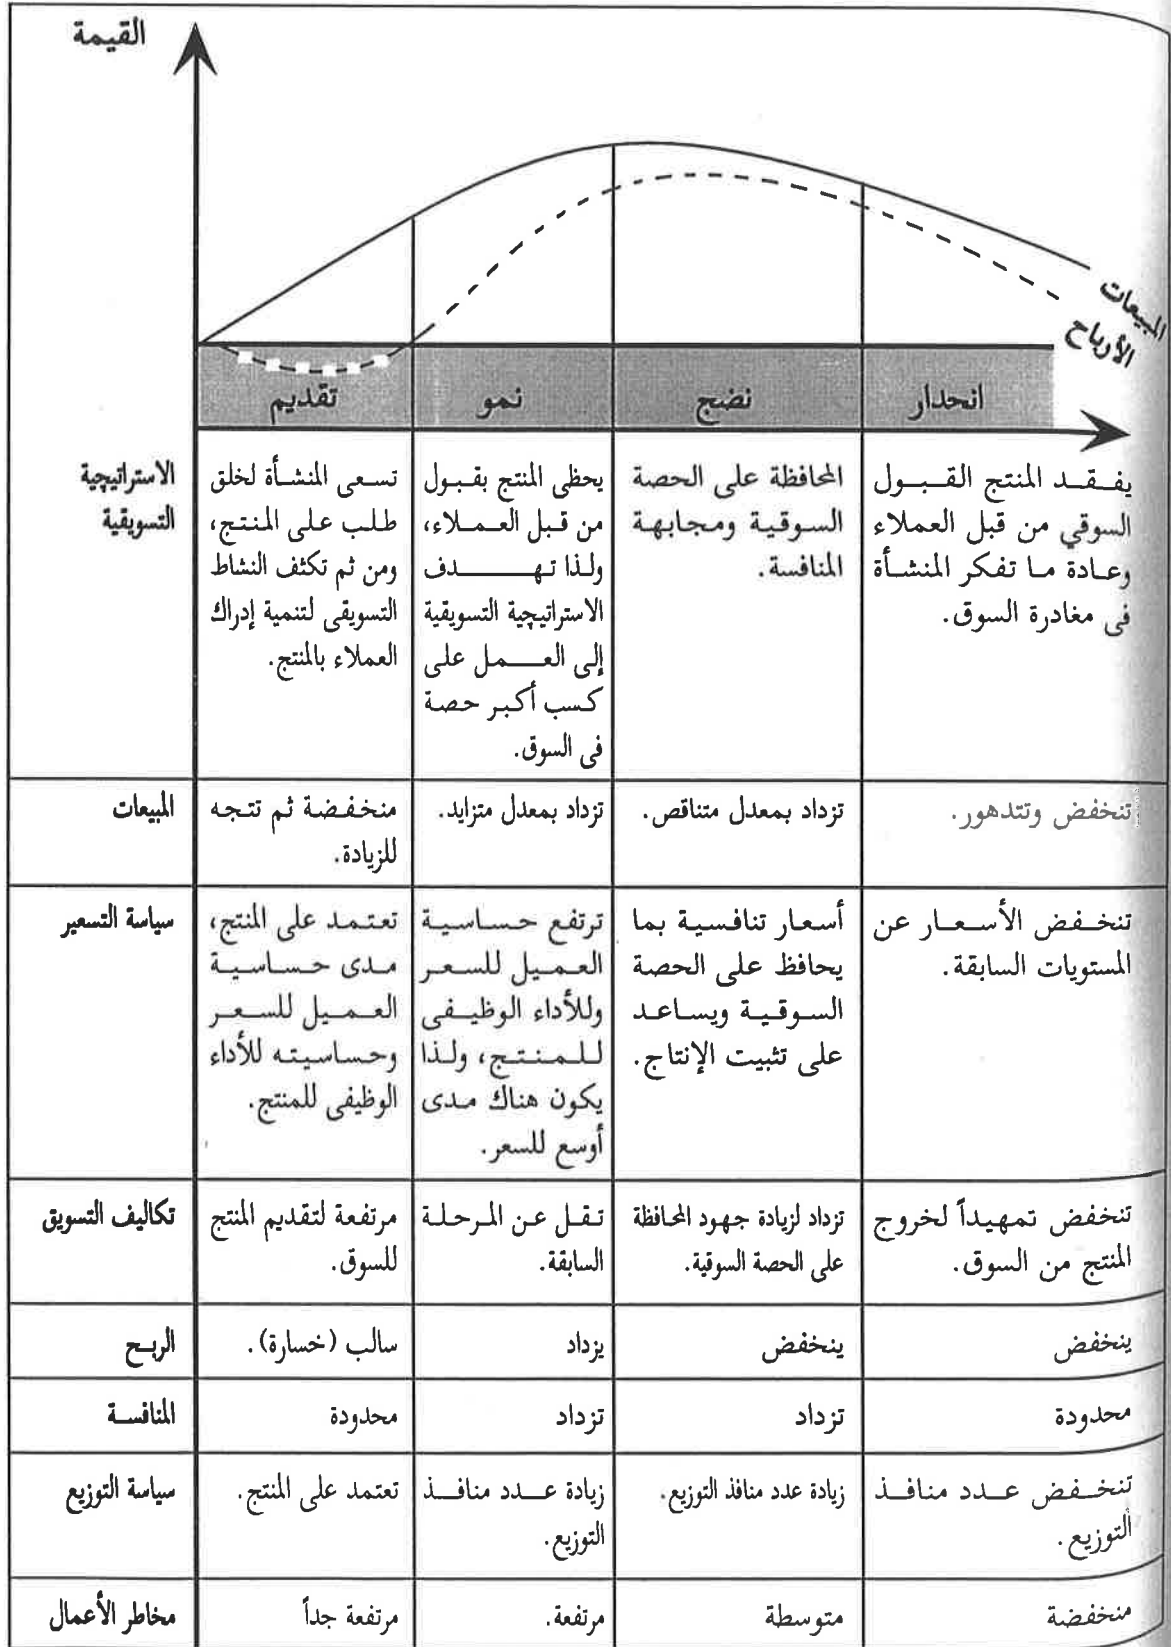 القيمة
المبيعات
الأرباح
تقديم
نمو
نضج
انحدار
الاستراتيجية
التسويقية
تسعى المنشأة لخلق
طلب على المنتج،
ومن ثم تكثف النشاط
التسويقى لتنمية إدراك
العملاء بالمنتج.
يحظى المنتج بقبول
من قبل العملاء،
ولذا تهدف
الاستراتيجية التسويقية
إلى العمل على
كسب أكبر حصة
فى السوق.
المحافظة على الحصة
السوقية ومجابهة
المنافسة.
يفقد المنتج القبول
السوقي من قبل العملاء
وعادة ما تفكر المنشأة
فى مغادرة السوق.
المبيعات
منخفضة ثم تتجه
للزيادة.
تزداد بمعدل متزايد.
تزداد بمعدل متناقص.
تنخفض وتتدهور.
سياسة التسعير
تعتمد على المنتج،
مدى حساسية
العميل للسعر
وحساسيته للأداء
الوظيفى للمنتج.
ترتفع حساسية
العميل للسعر
وللأداء الوظيفى
للمنتج، ولذا
يكون هناك مدى
أوسع للسعر.
أسعار تنافسية بما
يحافظ على الحصة
السوقية ويساعد
على تثبيت الإنتاج.
تنخفض الأسعار عن
المستويات السابقة.
تكاليف التسويق
مرتفعة لتقديم المنتج
للسوق.
تقل عن المرحلة
السابقة.
تزداد لزيادة جهود المحافظة
على الحصة السوقية.
تنخفض تمهيداً لخروج
المنتج من السوق.
الربح
سالب (خسارة).
يزداد
ينخفض
ينخفض
المنافسة
محدودة
تزداد
تزداد
محدودة
سياسة التوزيع
تعتمد على المنتج.
زيادة عدد منافذ
التوزيع.
زيادة عدد منافذ التوزيع.
تنخفض عدد منافذ
التوزيع.
مخاطر الأعمال
مرتفعة جداً
مرتفعة.
متوسطة
منخفضة